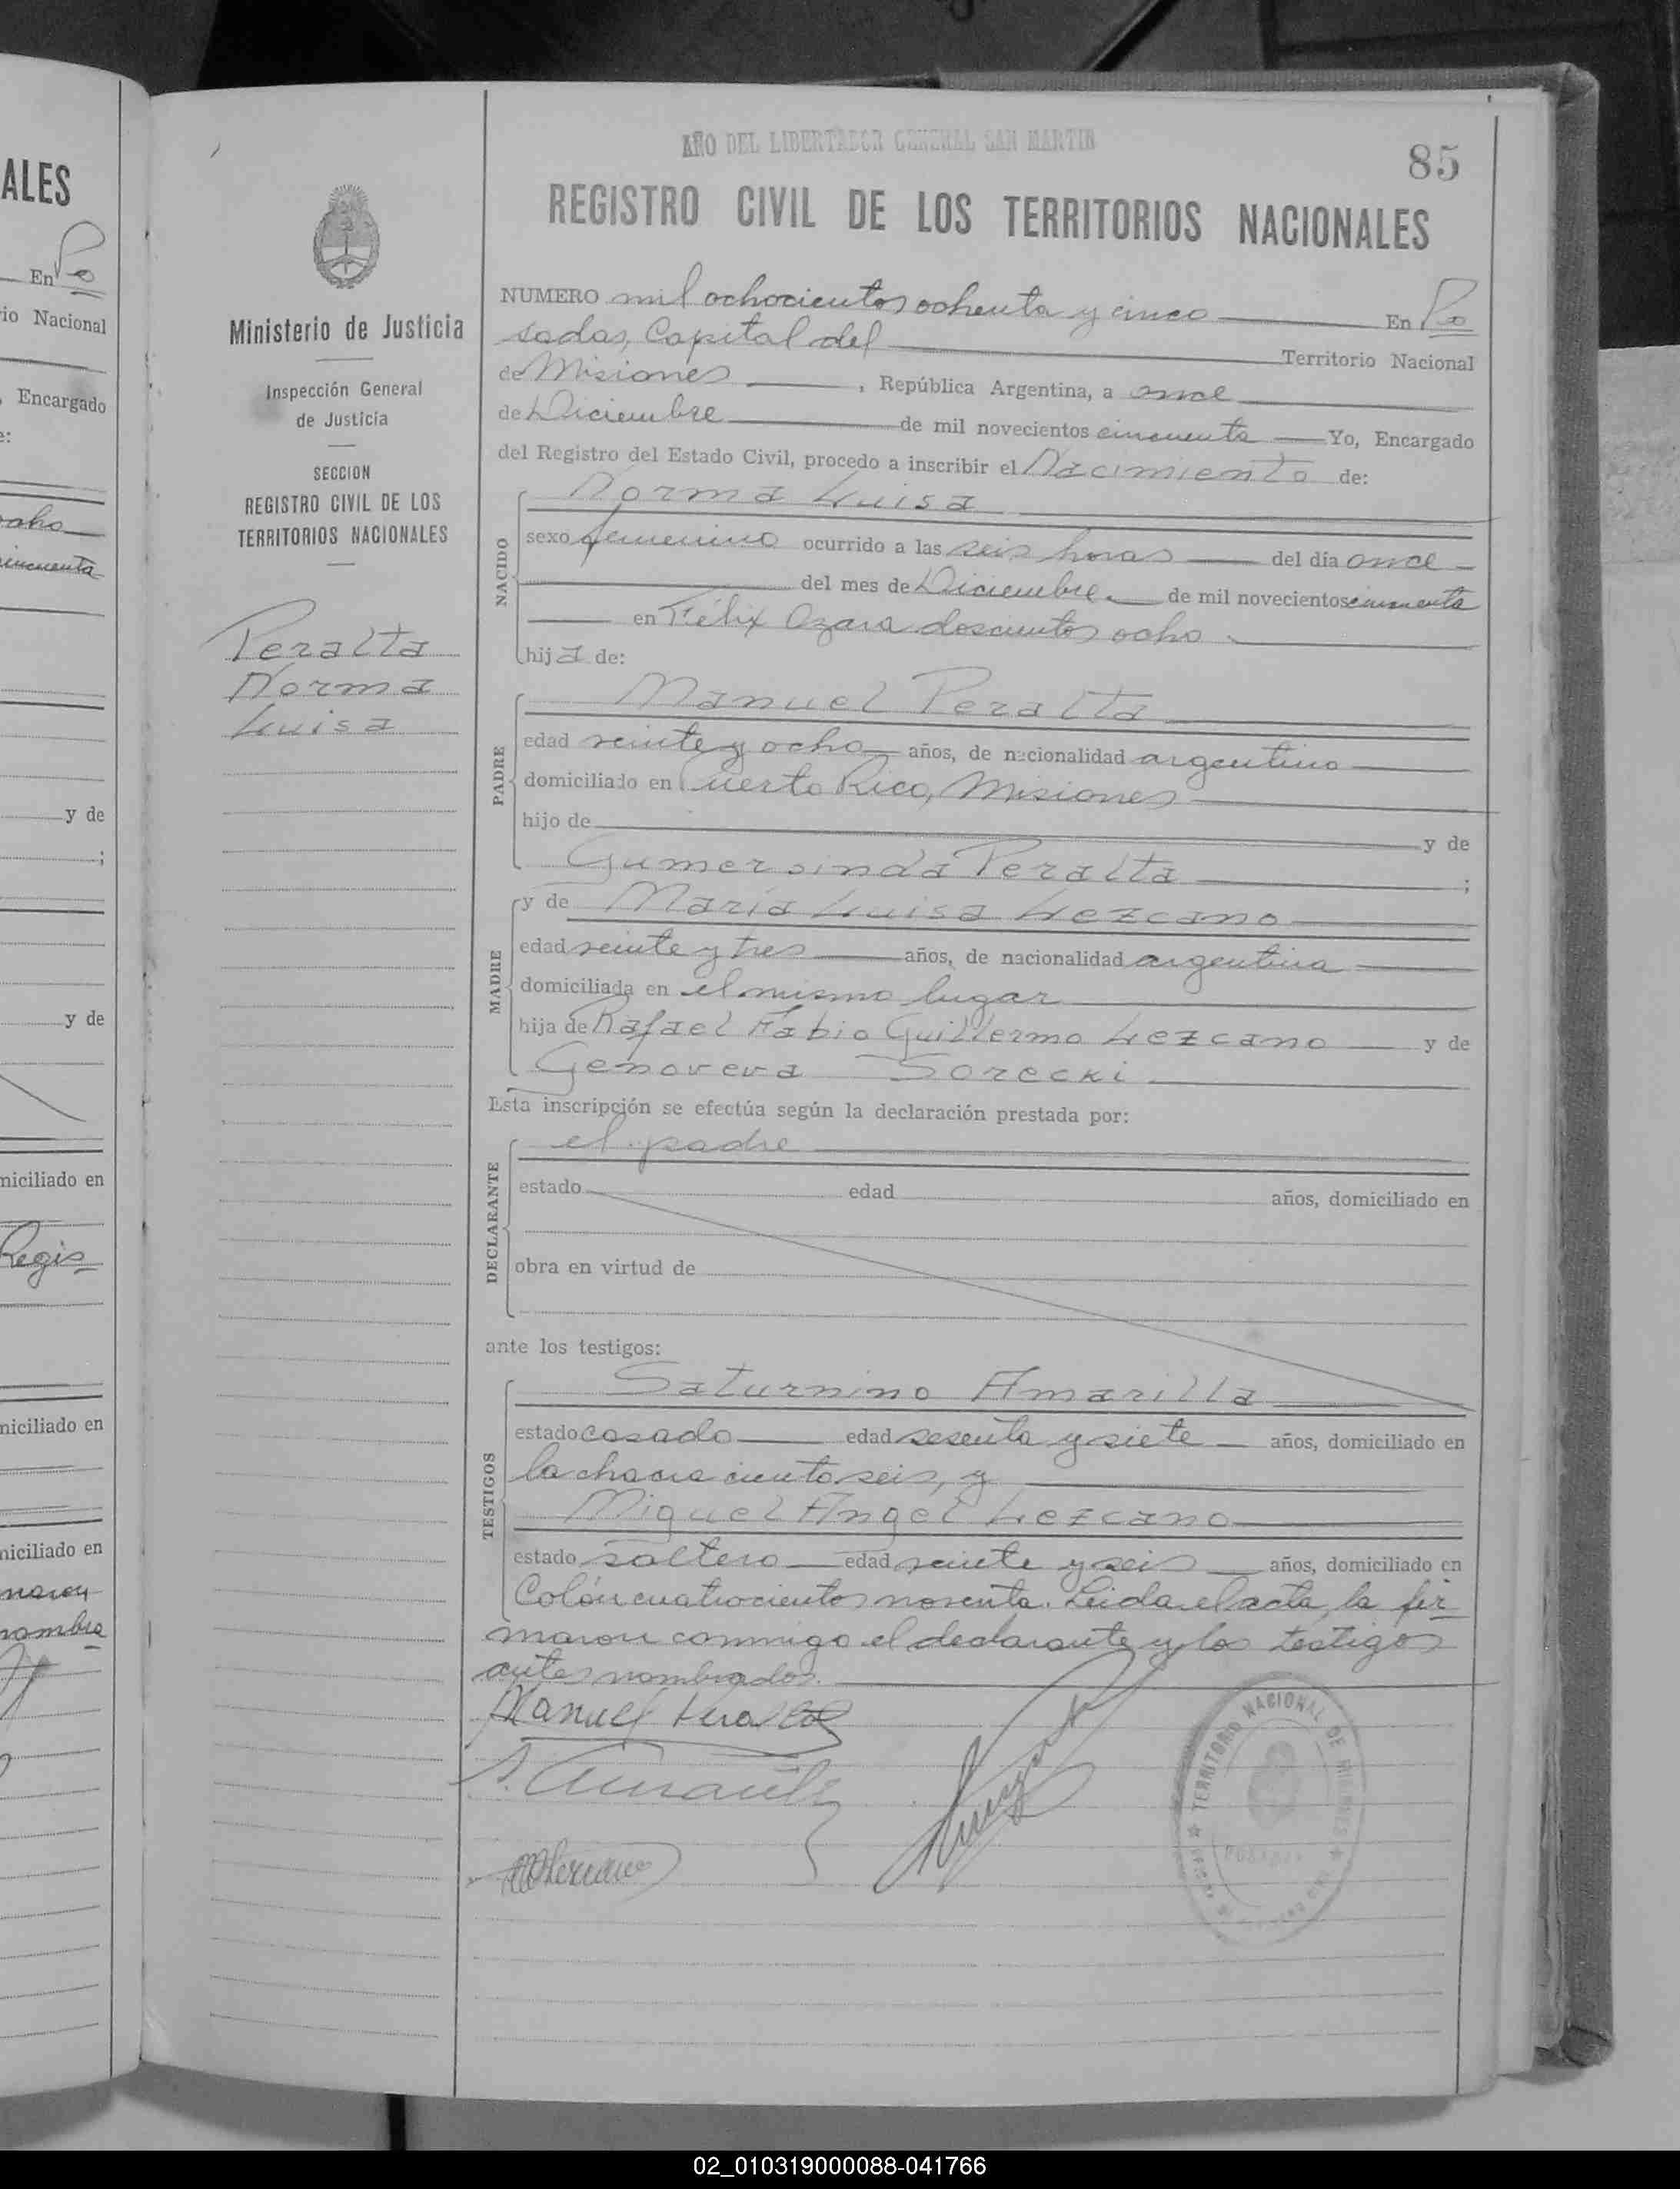 ALES
En Po
io Nacional
, Encargado
e:
ocho
cincuenta
y de
;
y de
niciliado en
Regis
niciliado en
niciliado en
maron
nombra
Ministerio de Justicia
Inspección General
de Justicia
SECCION
REGISTRO CIVIL DE LOS
TERRITORIOS NACIONALES
Peralta
Norma
Luisa
AÑO DEL LIBERTADOR GENERAL SAN MARTIN
85
REGISTRO CIVIL DE LOS TERRITORIOS NACIONALES
NUMERO mil ochocientos ochenta y cinco En Po
sadas, Capital del Territorio Nacional
de Misiones, República Argentina, a once
de Diciembre de mil novecientos cincuenta Yo, Encargado
del Registro del Estado Civil, procedo a inscribir el Nacimiento de:
Norma Luisa
NACIDO
sexo femenino ocurrido a las seis horas del día once
del mes de Diciembre de mil novecientos cincuenta
en Félix Azara doscientos ocho
hija de:
Manuel Peralta
PADRE
edad veinte y ocho años, de nacionalidad argentino
domiciliado en Puerto Rico, Misiones
hijo de y de
Gumersinda Peralta ;
y de María Luisa Lezcano
MADRE
edad veinte y tres años, de nacionalidad argentina
domiciliada en el mismo lugar
hija de Rafael Fabio Guillermo Lezcano y de
Genoveva Sorecki
Esta inscripción se efectúa según la declaración prestada por:
el padre
DECLARANTE
estado edad años, domiciliado en
obra en virtud de
ante los testigos:
Saturnino Amarilla
TESTIGOS
estado casado edad sesenta y siete años, domiciliado en
la chacra ciento seis, y
Miguel Angel Lezcano
estado soltero edad veinte y seis años, domiciliado en
Colón cuatrocientos noventa. Leida el acta, la fir
maron conmigo el declarante y los testigos
antes nombrados.
Manuel Peralta
S. Amarilla
MALezcano
TERRITORIO NACIONAL DE MISIONES
POSADAS
02_010319000088-041766